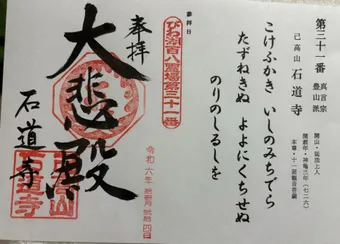 第三十一番
真言宗
豊山派
己高山 石道寺
開山・延法上人
開創年・神亀三年(七二六)
本尊・十一面観音菩薩
こけふかき いしのみちでら
たずねきぬ よよにくちせぬ
のりのしるしを
参拝日
びわ湖百八霊場第三十一番
令和六年
奉拝
大悲殿
石道寺
石道寺